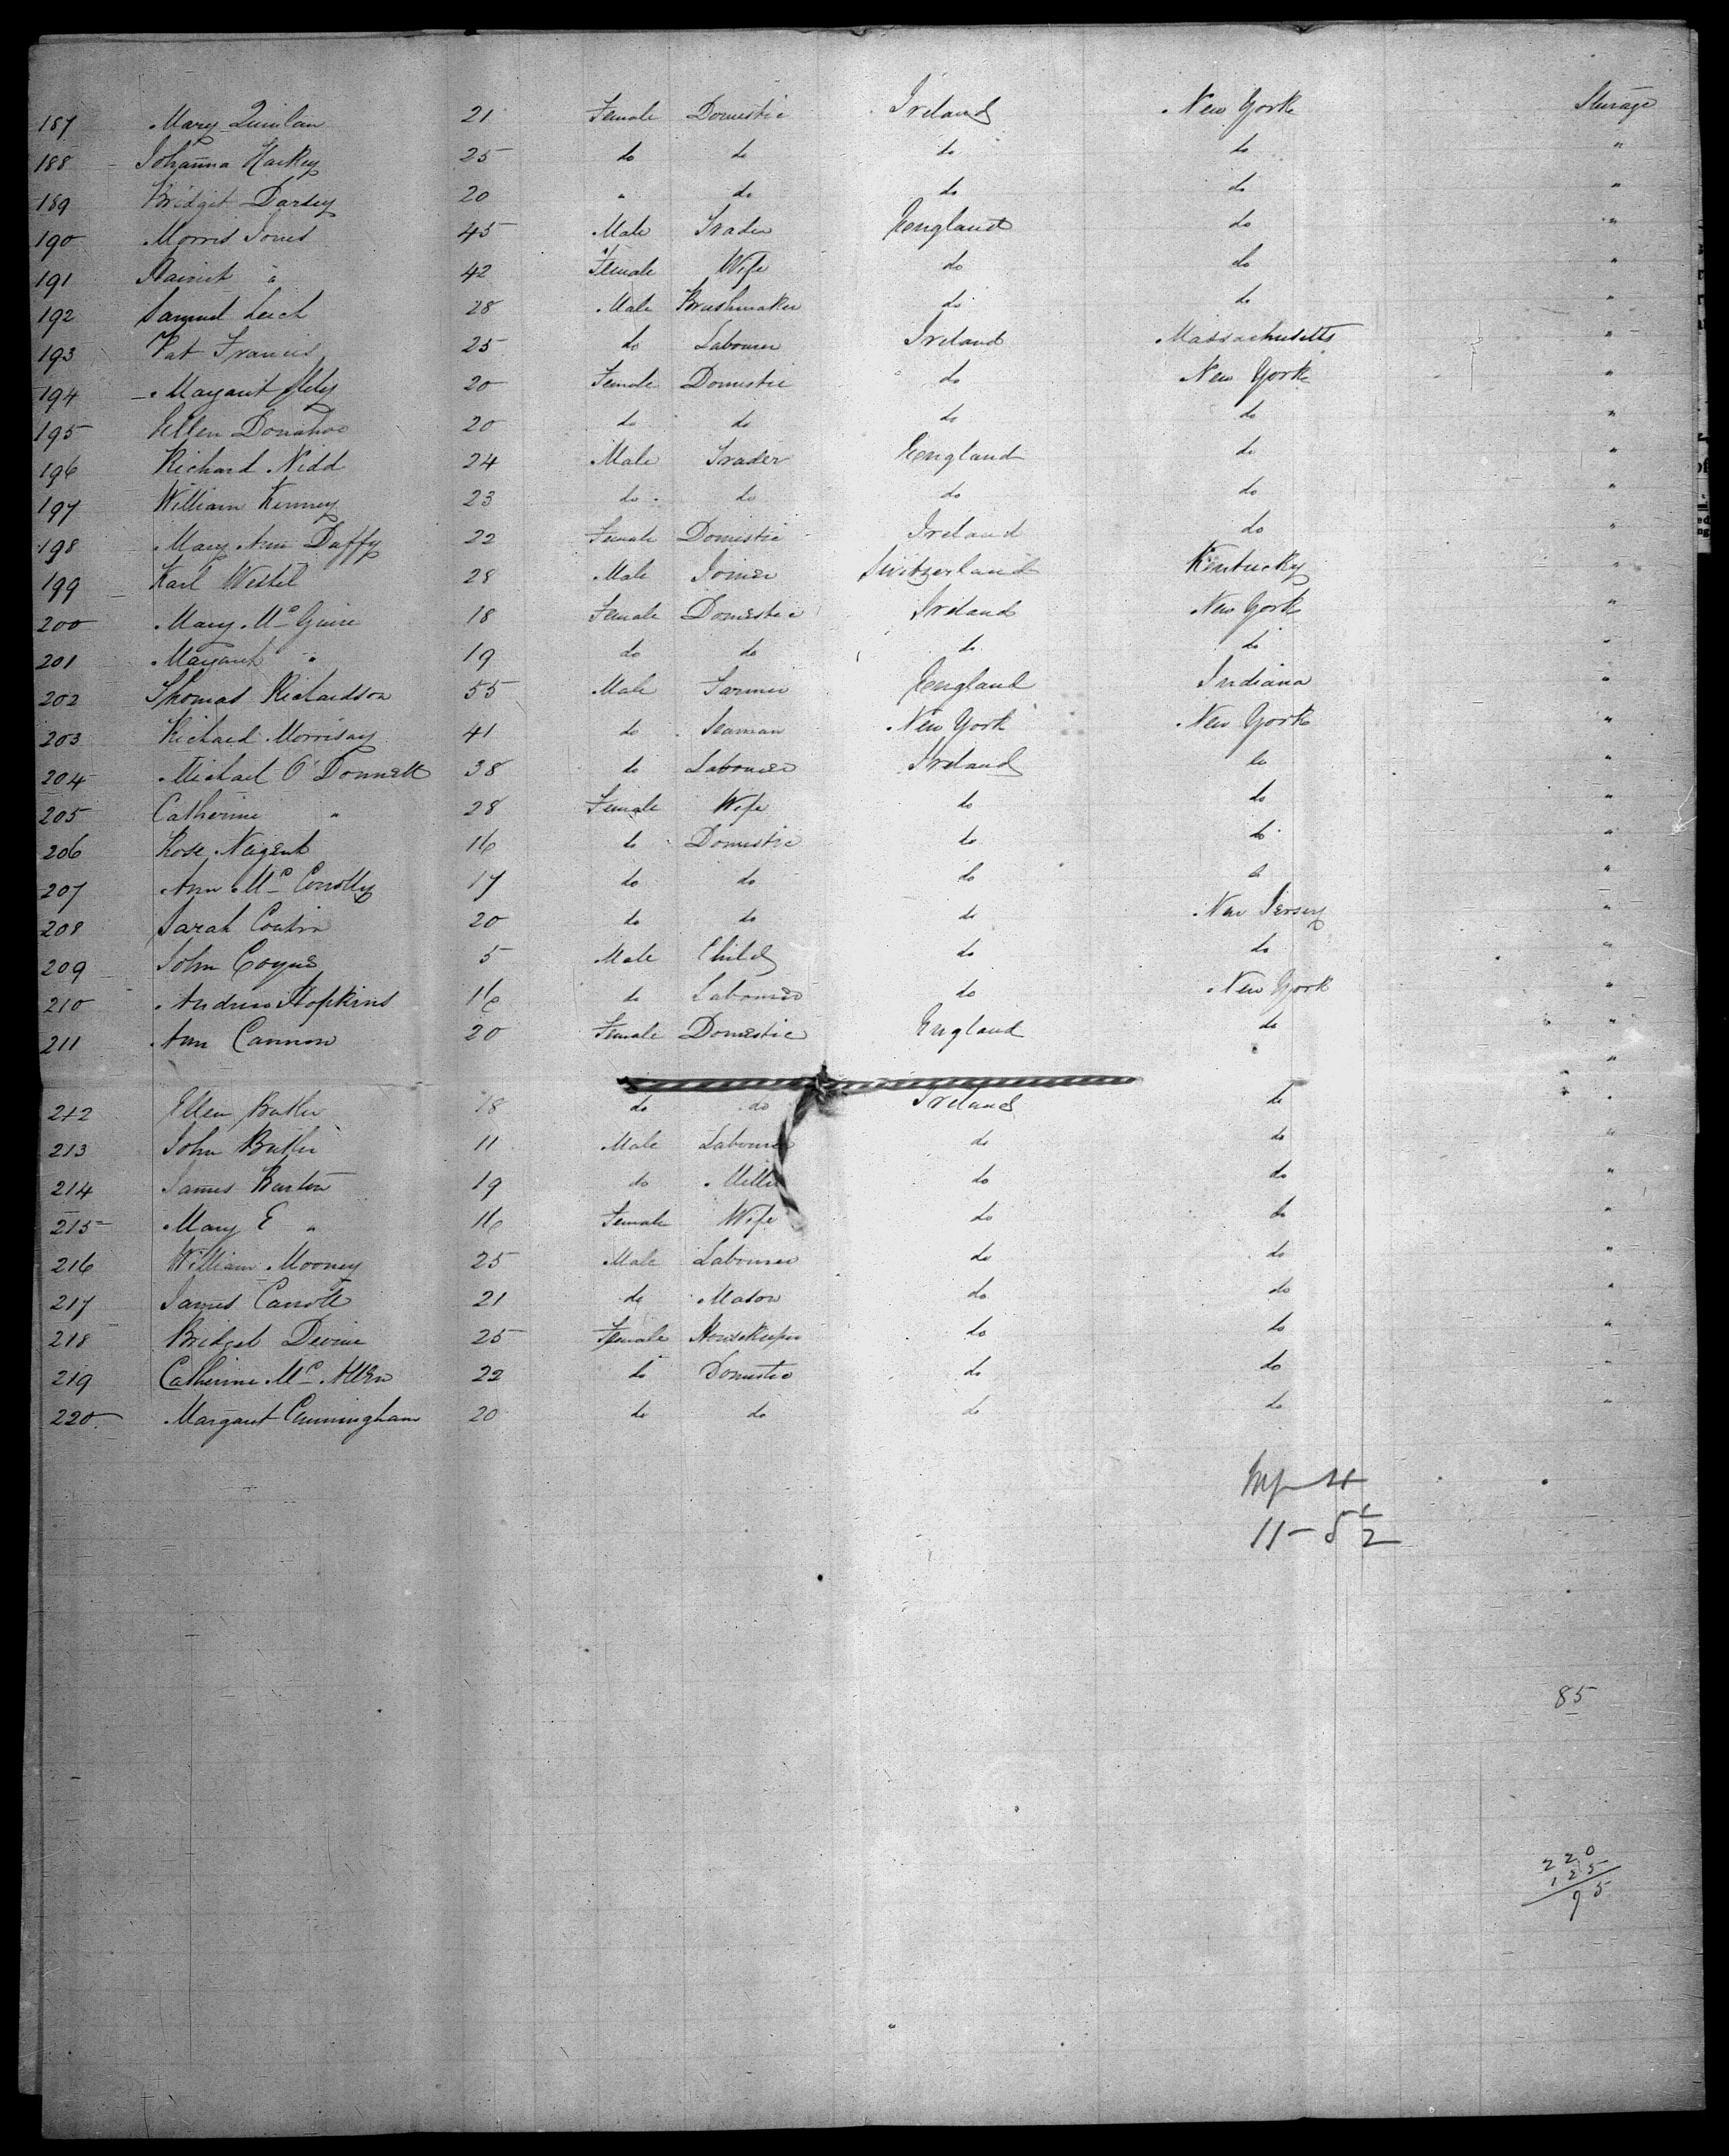 187 Mary Quinlan 21 Female Domestic Ireland New York Sterage
188 Johanna Harkey 25 do do do do "
189 Bridget Darsey 20 " do do do "
190 Morris Jones 45 Male Trader England do "
191 Harriet " 42 Female Wife do do "
192 Samuel Leech 28 Male Brushmaker do do "
193 Pat Francis 25 do Labourer Ireland Massachusetts "
194 Margaret 20 Female Domestic do New York "
195 Ellen Donahoe 20 do do do do "
196 Richard Nidd 24 Male Trader England do "
197 William Kenney 23 do do do do "
198 Mary Ann Duffy 22 Female Domestic Ireland do "
199 Karl Westel 28 Male Joiner Switzerland Kentucky "
200 Mary McGuire 18 Female Domestic Ireland New York "
201 Margaret " 19 do do do do "
202 Thomas Richardson 55 Male Farmer England Indiana "
203 Richard Morrisay 41 do Seaman New York New York "
204 Michael O'Donnell 38 do Labourer Ireland do "
205 Catherine " 28 Female Wife do do "
206 Rose Neigent 16 do Domestic do do "
207 Ann Mc Conolly 17 do do do do "
208 Sarah 20 do do do New Jersey "
209 John Coyne 5 Male Child do do "
210 Andrew Hopkins 16 do Labourer do New York "
211 Ann Cannon 20 Female Domestic England do "
"
212 Ellen Butler 18 do do Ireland do "
213 John Butler 11 Male Labourer do do "
214 James Burton 19 do Miller do do "
215 Mary E " 16 Female Wife do do "
216 William Mooney 25 Male Labourer do do "
217 James Carroll 21 do Mason do do "
218 Bridget Devine 25 Female Housekeeper do do "
219 Catherine Mc Allen 22 do Domestic do do "
220 Margaret Cunningham 20 do do do do "
11-5½
85
220
125
95